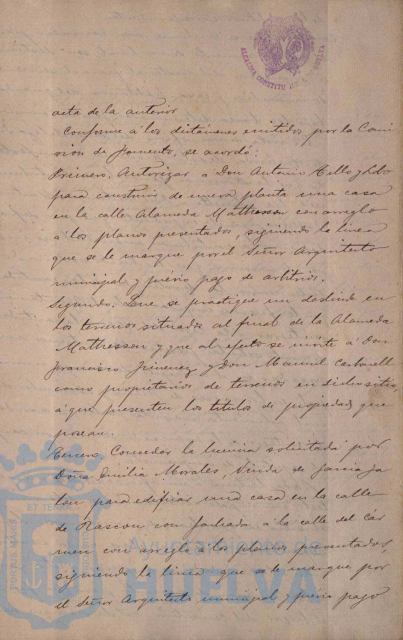 ALCALDIA CONSTITU
acta de la anterior
Conforme á los dictámenes emitidos por la Comi
sion de Fomento, se acordó:
Primero. Autorizar a Don Antonio Tello y Lobo
para construir de nueva planta una casa
en la calle Alameda Mathesson con arreglo
á los planos presentados, siguiendo la linea
que se le marque por el Señor Arquitecto
municipal y prévio pago de arbitrios.
Segundo. Que se practique un deslinde en
los terrenos situados al final de la Alameda
Mathesson y que al efecto se invite á Don
Francisco Jimenez y Don Manuel Carbonell
como propietarios de terrenos en dicho sitio,
á que presenten los titulos de propiedad que
posean.
Tercero. Conceder la licencia solicitada por
Doña Emilia Morales Viuda de Garcia Ja
lon para edificar una casa en la calle
de Rascon con fachada á la calle del Cár
men con arreglo á los planos presentados,
siguiendo la linea que se le marque por
el Señor Arquitecto municipal y previo pago
Ayuntamiento de
HUELVA